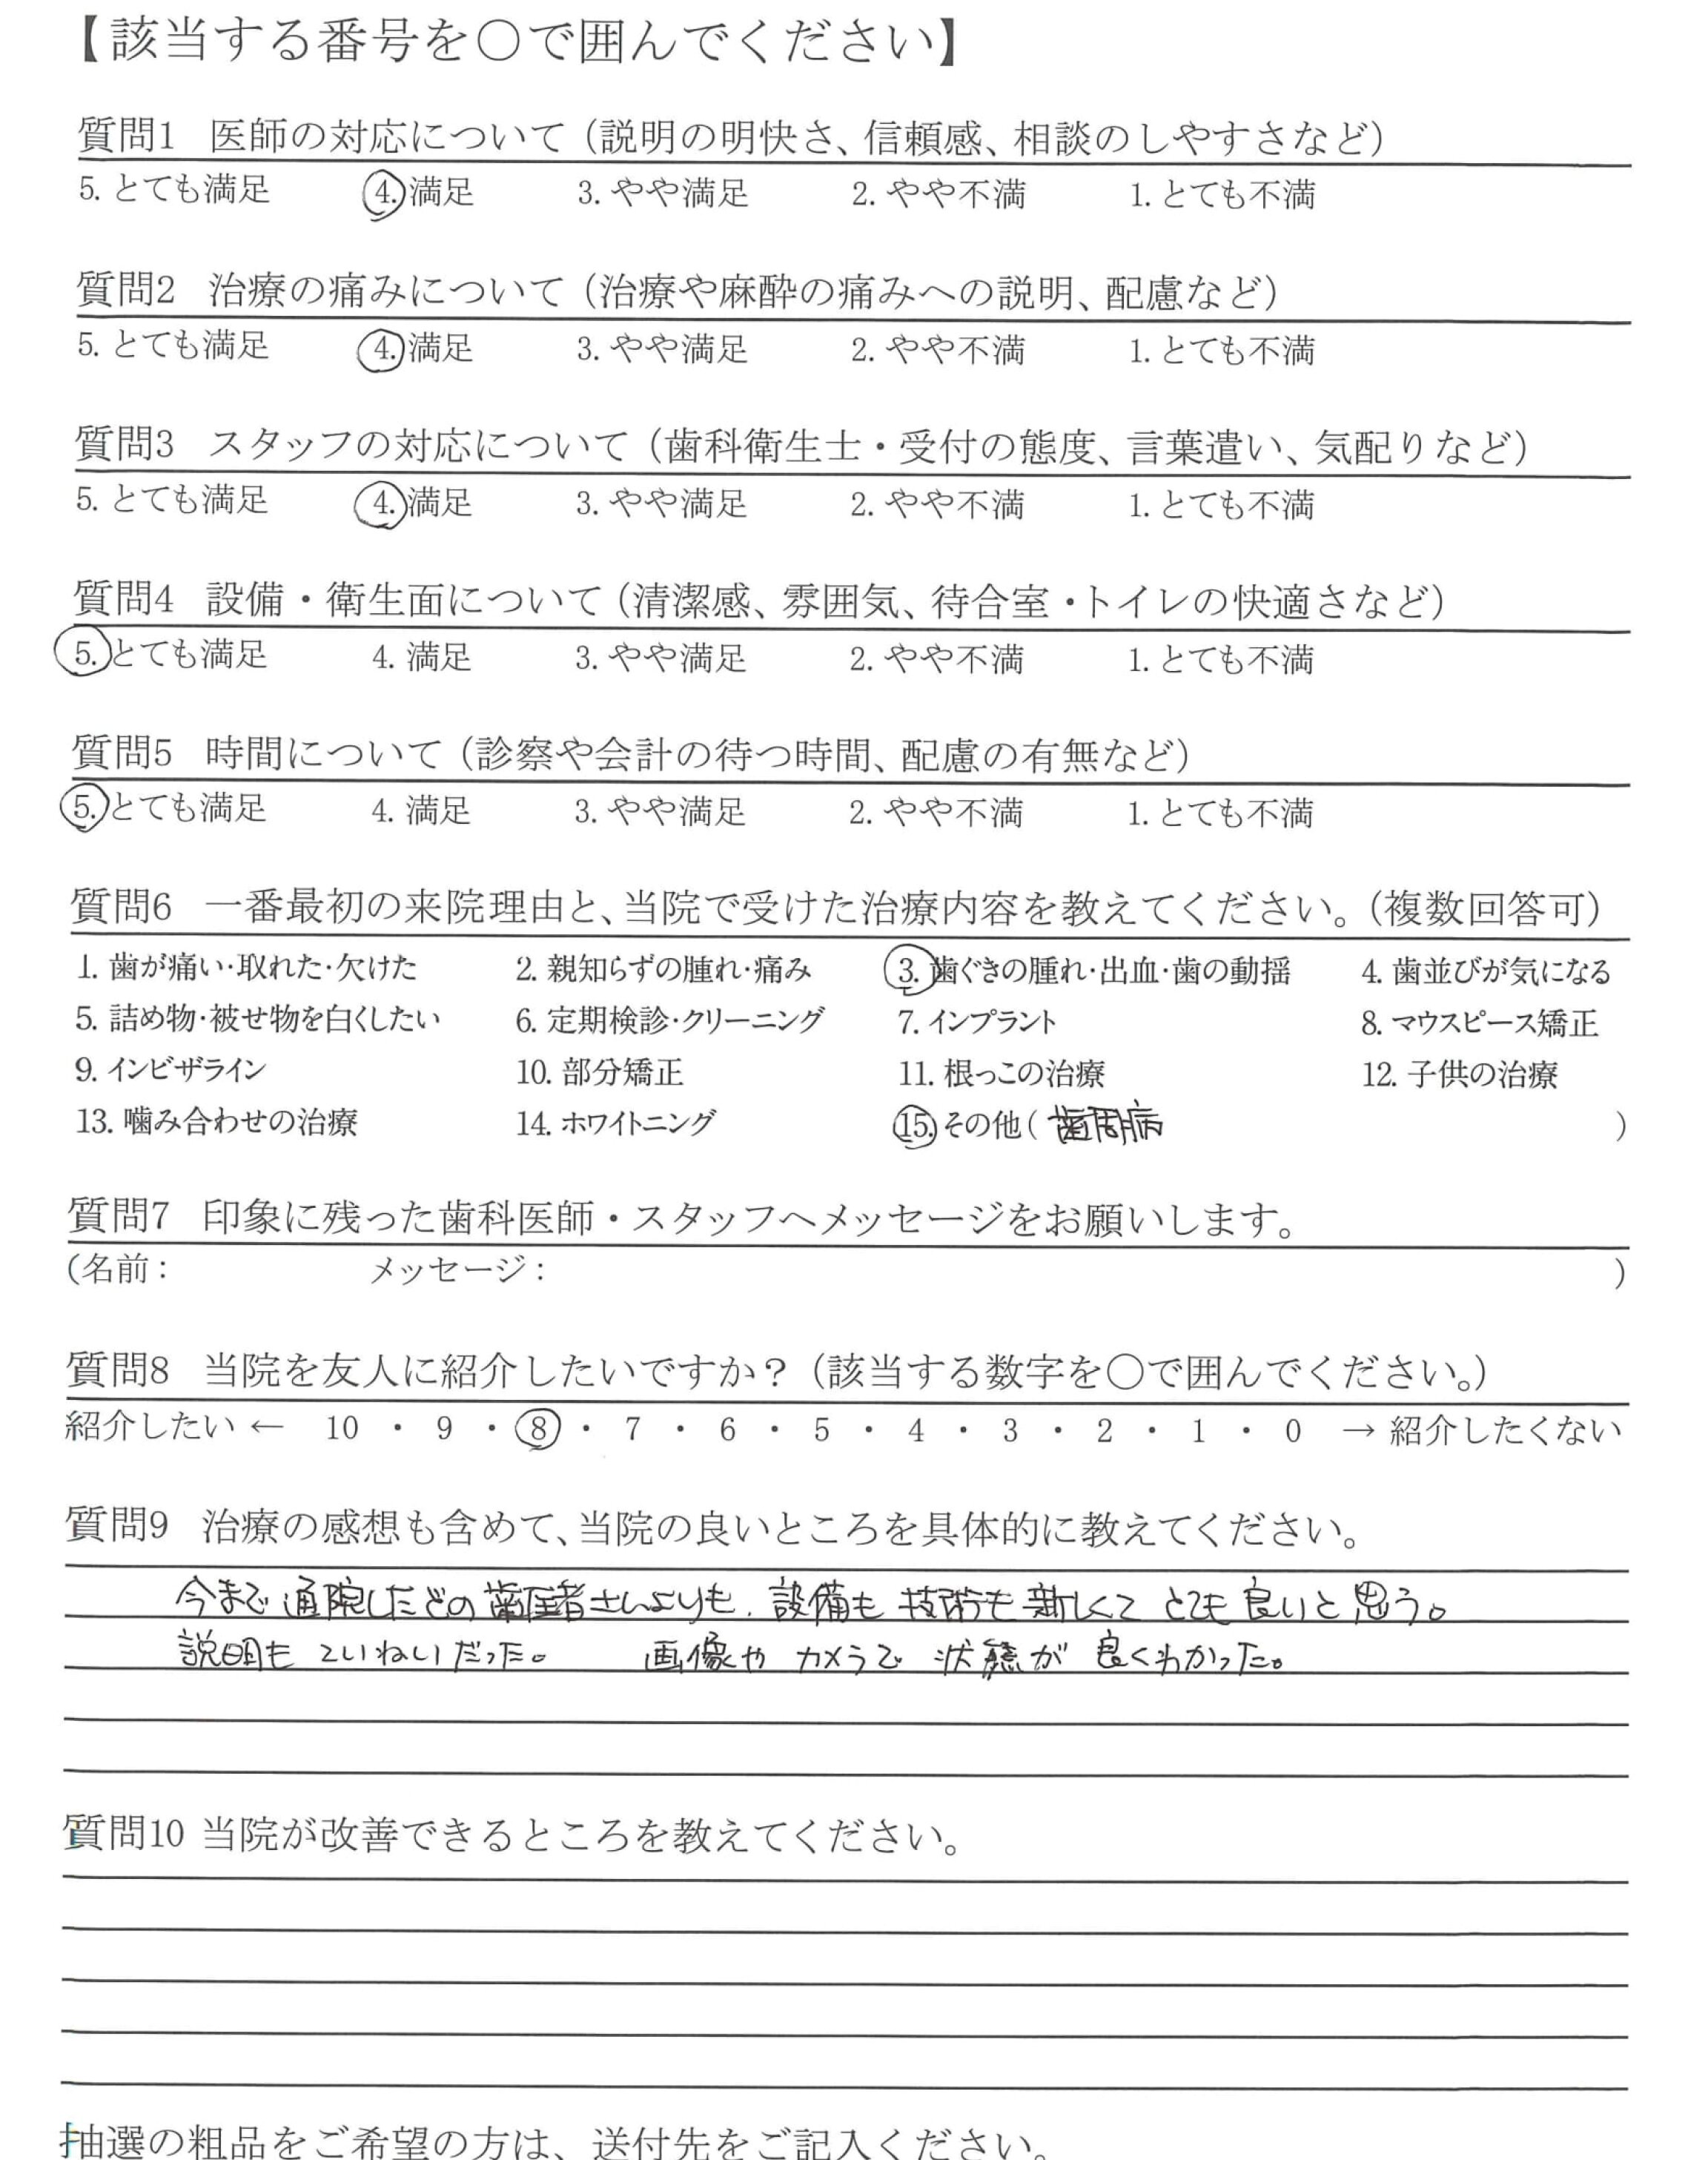 【該当する番号を○で囲んでください】
質問1 医師の対応について（説明の明快さ、信頼感、相談のしやすさなど）
5. とても満足 4. 満足 3. やや満足 2. やや不満 1. とても不満
質問2 治療の痛みについて（治療や麻酔の痛みへの説明、配慮など）
5. とても満足 4. 満足 3. やや満足 2. やや不満 1. とても不満
質問3 スタッフの対応について（歯科衛生士・受付の態度、言葉遣い、気配りなど）
5. とても満足 4. 満足 3. やや満足 2. やや不満 1. とても不満
質問4 設備・衛生面について（清潔感、雰囲気、待合室・トイレの快適さなど）
5. とても満足 4. 満足 3. やや満足 2. やや不満 1. とても不満
質問5 時間について（診察や会計の待つ時間、配慮の有無など）
5. とても満足 4. 満足 3. やや満足 2. やや不満 1. とても不満
質問6 一番最初の来院理由と、当院で受けた治療内容を教えてください。（複数回答可）
1. 歯が痛い・取れた・欠けた 2. 親知らずの腫れ・痛み 3. 歯ぐきの腫れ・出血・歯の動揺 4. 歯並びが気になる
5. 詰め物・被せ物を白くしたい 6. 定期検診・クリーニング 7. インプラント 8. マウスピース矯正
9. インビザライン 10. 部分矯正 11. 根っこの治療 12. 子供の治療
13. 噛み合わせの治療 14. ホワイトニング 15. その他（ 歯周病 ）
質問7 印象に残った歯科医師・スタッフへメッセージをお願いします。
（名前： メッセージ： ）
質問8 当院を友人に紹介したいですか？（該当する数字を○で囲んでください。）
紹介したい ← 10 ・ 9 ・ 8 ・ 7 ・ 6 ・ 5 ・ 4 ・ 3 ・ 2 ・ 1 ・ 0 → 紹介したくない
質問9 治療の感想も含めて、当院の良いところを具体的に教えてください。
今まで通院したどの歯医者さんよりも、設備も技術も新しくてとても良いと思う。
説明もていねいだった。 画像やカメラで状態が良くわかった。
質問10 当院が改善できるところを教えてください。
抽選の粗品をご希望の方は、送付先をご記入ください。